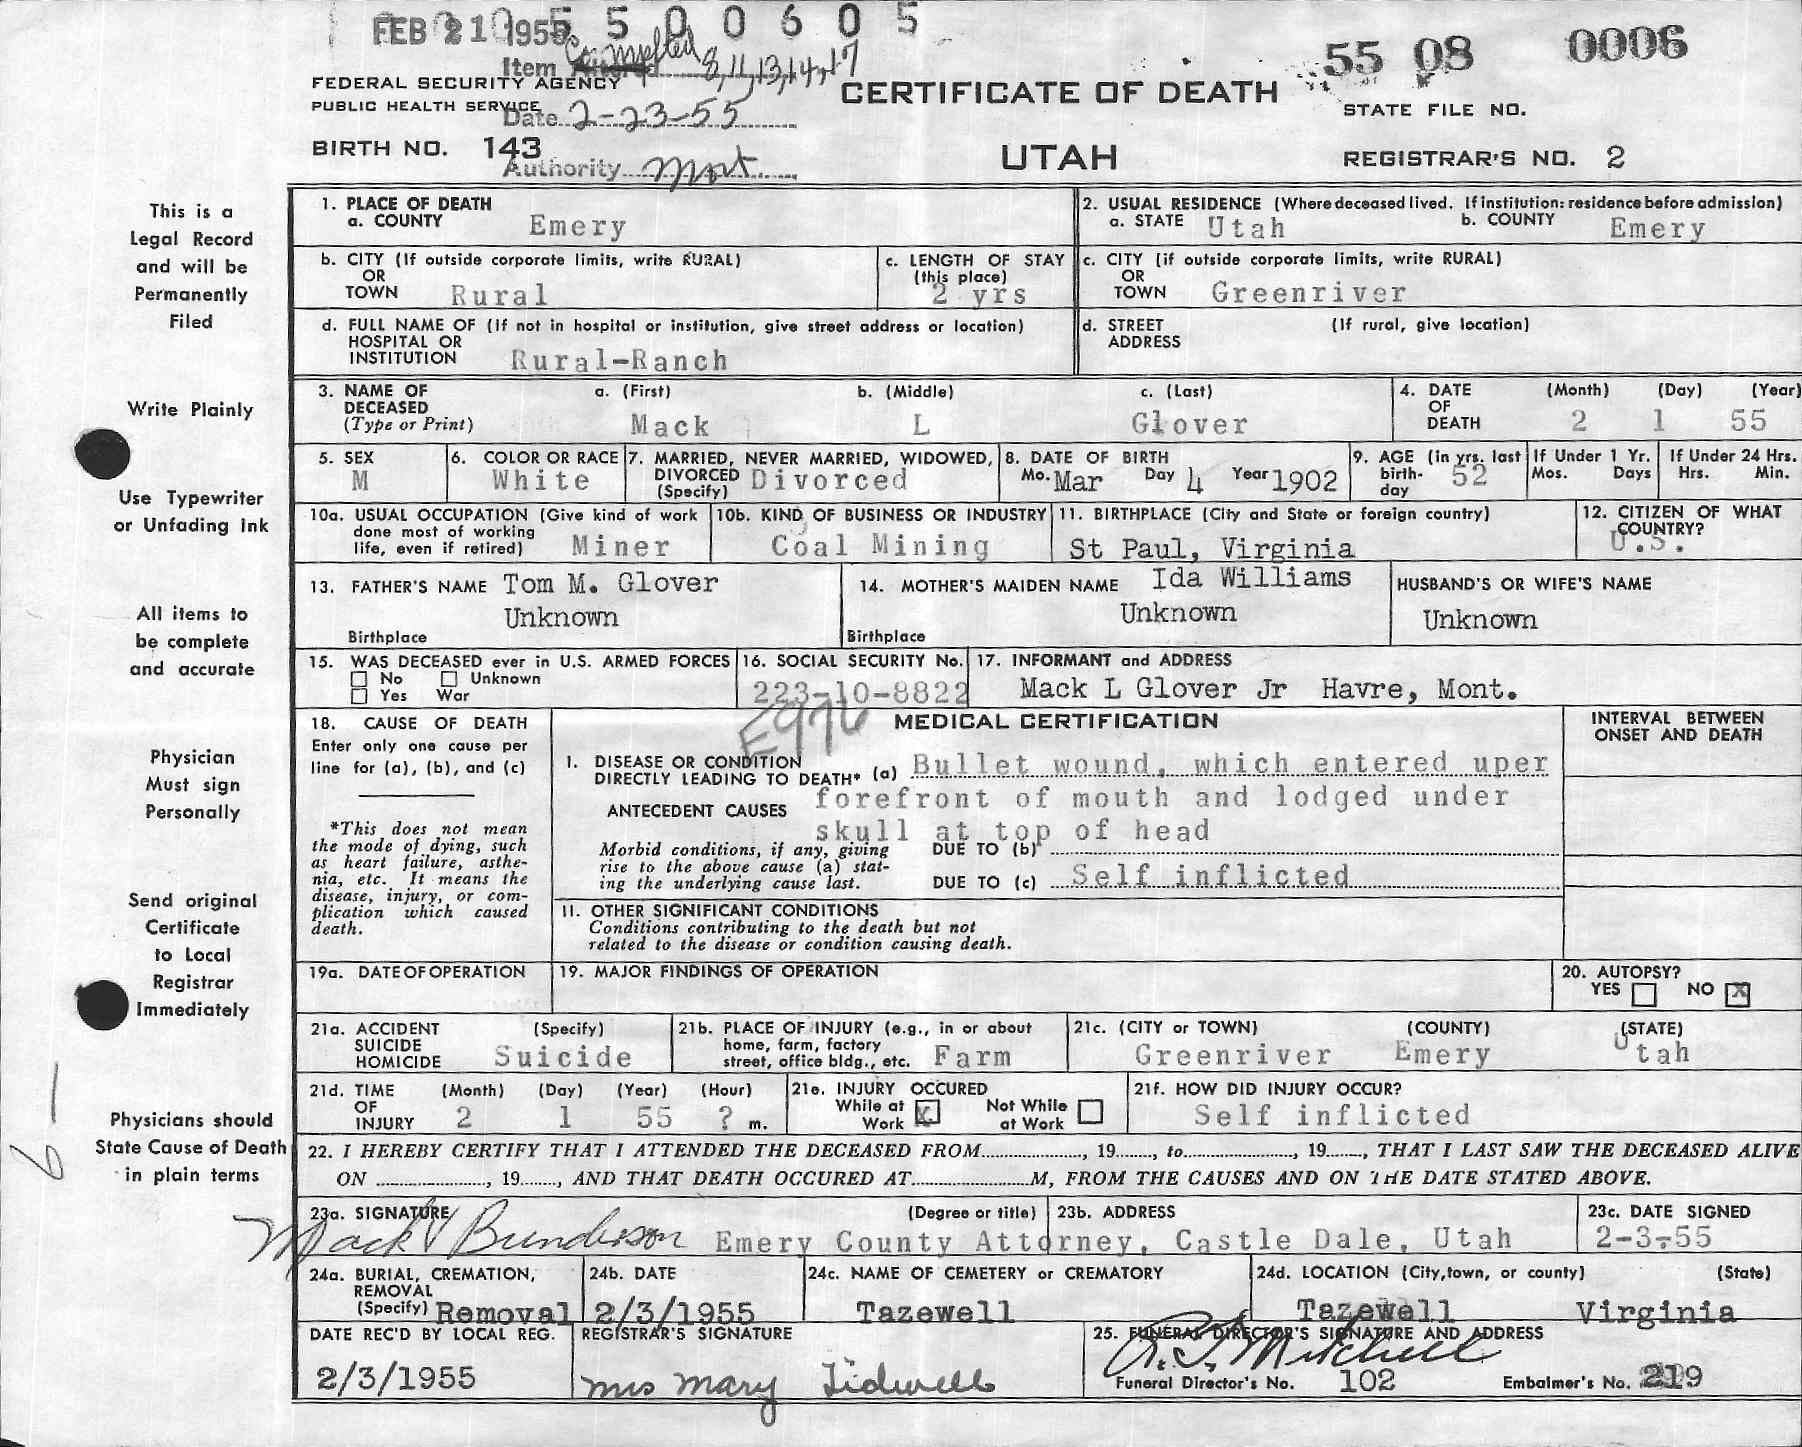 FEB 21 1955 5500605
Item Completed 8, 11, 13, 14, 17
55 08 0006
FEDERAL SECURITY AGENCY
CERTIFICATE OF DEATH
PUBLIC HEALTH SERVICE
Date 2-23-55
STATE FILE NO.
BIRTH NO. 143
UTAH
REGISTRAR'S NO. 2
Authority Mort
This is a
Legal Record
and will be
Permanently
Filed
Write Plainly
Use Typewriter
or Unfading Ink
All items to
be complete
and accurate
Physician
Must sign
Personally
Send original
Certificate
to Local
Registrar
Immediately
Physicians should
State Cause of Death
in plain terms
1. PLACE OF DEATH
a. COUNTY Emery
2. USUAL RESIDENCE (Where deceased lived. If institution: residence before admission)
a. STATE Utah b. COUNTY Emery
b. CITY (If outside corporate limits, write RURAL)
OR
TOWN Rural
c. LENGTH OF STAY
(this place)
2 yrs
c. CITY (if outside corporate limits, write RURAL)
OR
TOWN Greenriver
d. FULL NAME OF (If not in hospital or institution, give street address or location)
HOSPITAL OR
INSTITUTION Rural-Ranch
d. STREET (If rural, give location)
ADDRESS
3. NAME OF a. (First) b. (Middle) c. (Last)
DECEASED
(Type or Print) Mack L Glover
4. DATE (Month) (Day) (Year)
OF
DEATH 2 1 55
5. SEX
M
6. COLOR OR RACE
White
7. MARRIED, NEVER MARRIED, WIDOWED,
DIVORCED Divorced
(Specify)
8. DATE OF BIRTH
Mo. Mar Day 4 Year 1902
9. AGE (in yrs. last
birth- 52
day
If Under 1 Yr.
Mos. Days
If Under 24 Hrs.
Hrs. Min.
10a. USUAL OCCUPATION (Give kind of work
done most of working
life, even if retired) Miner
10b. KIND OF BUSINESS OR INDUSTRY
Coal Mining
11. BIRTHPLACE (City and State or foreign country)
St Paul, Virginia
12. CITIZEN OF WHAT
COUNTRY?
U.S.
13. FATHER'S NAME Tom M. Glover
Unknown
Birthplace
14. MOTHER'S MAIDEN NAME Ida Williams
Unknown
Birthplace
HUSBAND'S OR WIFE'S NAME
Unknown
15. WAS DECEASED ever in U.S. ARMED FORCES
No Unknown
Yes War
16. SOCIAL SECURITY No.
223-10-8822
17. INFORMANT and ADDRESS
Mack L Glover Jr Havre, Mont.
18. CAUSE OF DEATH
Enter only one cause per
line for (a), (b), and (c)
*This does not mean
the mode of dying, such
as heart failure, asthe-
nia, etc. It means the
disease, injury, or com-
plication which caused
death.
E976
MEDICAL CERTIFICATION
INTERVAL BETWEEN
ONSET AND DEATH
I. DISEASE OR CONDITION
DIRECTLY LEADING TO DEATH* (a) Bullet wound, which entered uper
ANTECEDENT CAUSES forefront of mouth and lodged under
skull at top of head
Morbid conditions, if any, giving
rise to the above cause (a) stat-
ing the underlying cause last.
DUE TO (b)
DUE TO (c) Self inflicted
11. OTHER SIGNIFICANT CONDITIONS
Conditions contributing to the death but not
related to the disease or condition causing death.
19a. DATE OF OPERATION
19. MAJOR FINDINGS OF OPERATION
20. AUTOPSY?
YES NO X
21a. ACCIDENT (Specify)
SUICIDE
HOMICIDE Suicide
21b. PLACE OF INJURY (e.g., in or about
home, farm, factory
street, office bldg., etc. Farm
21c. (CITY or TOWN) (COUNTY) (STATE)
Greenriver Emery Utah
21d. TIME (Month) (Day) (Year) (Hour)
OF
INJURY 2 1 55 ? m.
21e. INJURY OCCURED
While at X Not While
Work at Work
21f. HOW DID INJURY OCCUR?
Self inflicted
6 —
22. I HEREBY CERTIFY THAT I ATTENDED THE DECEASED FROM, 19, to, 19, THAT I LAST SAW THE DECEASED ALIVE
ON, 19, AND THAT DEATH OCCURED AT M, FROM THE CAUSES AND ON THE DATE STATED ABOVE.
23a. SIGNATURE (Degree or title)
Mack V Bunderson Emery County Attorney,
23b. ADDRESS
Castle Dale, Utah
23c. DATE SIGNED
2-3-55
24a. BURIAL, CREMATION,
REMOVAL
(Specify) Removal
24b. DATE
2/3/1955
24c. NAME OF CEMETERY or CREMATORY
Tazewell
24d. LOCATION (City, town, or county) (State)
Tazewell Virginia
DATE REC'D BY LOCAL REG.
2/3/1955
REGISTRAR'S SIGNATURE
Mrs Mary Tidwell
25. FUNERAL DIRECTOR'S SIGNATURE AND ADDRESS
R. T. Mitchell
Funeral Director's No. 102 Embalmer's No. 219